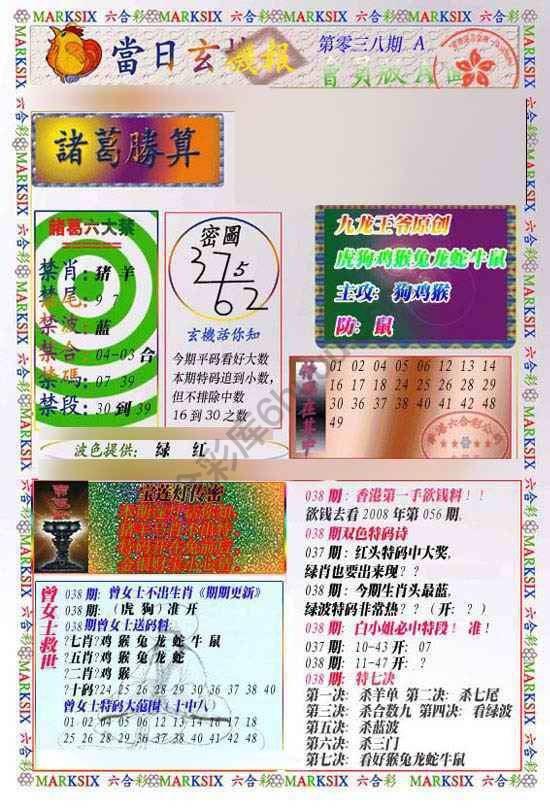 MARKSIX 六合彩 MARKSIX 六合彩 MARKSIX 六合彩 MARKSIX
當日玄機報
第零三八期 A
會員版A面
諸葛勝算
諸葛六大禁
禁肖: 豬 羊
禁尾: 9 7
禁波: 蓝
禁合: 04-03 合
禁碼: 07 39
禁段: 30 到 39
密圖
37 5
62
玄機話你知
今期平码看好大数
本期特码追到小数,
但不排除中数
16 到 30 之数
九龙王爷原创
虎狗鸡猴兔龙蛇牛鼠
主攻: 狗鸡猴
防: 鼠
01 02 04 05 06 12 13 14
16 17 18 24 25 26 28 29
30 36 37 38 40 41 42 48
49
波色提供: 绿 红
宝莲灯传密
曾女士救世
038 期: 曾女士不出生肖《期期更新》
038 期: (虎 狗) 准 开
038 期曾女士送码料:
?七肖?鸡 猴 兔 龙 蛇 牛 鼠
?五肖?鸡 猴 兔 龙 蛇
?二肖?鸡 猴
?十码?24 25 26 28 29 30 36 37 38 40
曾女士特码大范围 (十中八)
01 02 04 05 06 12 13 14 16 17 18
25 26 28 30 36 37 38 40 41 42 48
038 期: 香港第一手欲钱料!!
欲钱去看 2008 年第 056 期,
038 期双色特码诗
037 期: 红头特码中大奖,
绿肖也要出来现??
038 期: 今期生肖头最蓝,
绿波特码非常热??(开: ?)
038 期: 白小姐必中特段! 准!
037 期: 10-43 开: 07
038 期: 11-47 开: ?
038 期: 特七决
第一决: 杀羊单 第二决: 杀七尾
第三决: 杀合数九 第四决: 看绿波
第五决: 杀蓝波
第六决: 杀三门
第七决: 看好猴兔龙蛇牛鼠
MARKSIX 六合彩 MARKSIX 六合彩 MARKSIX 六合彩 MARKSIX